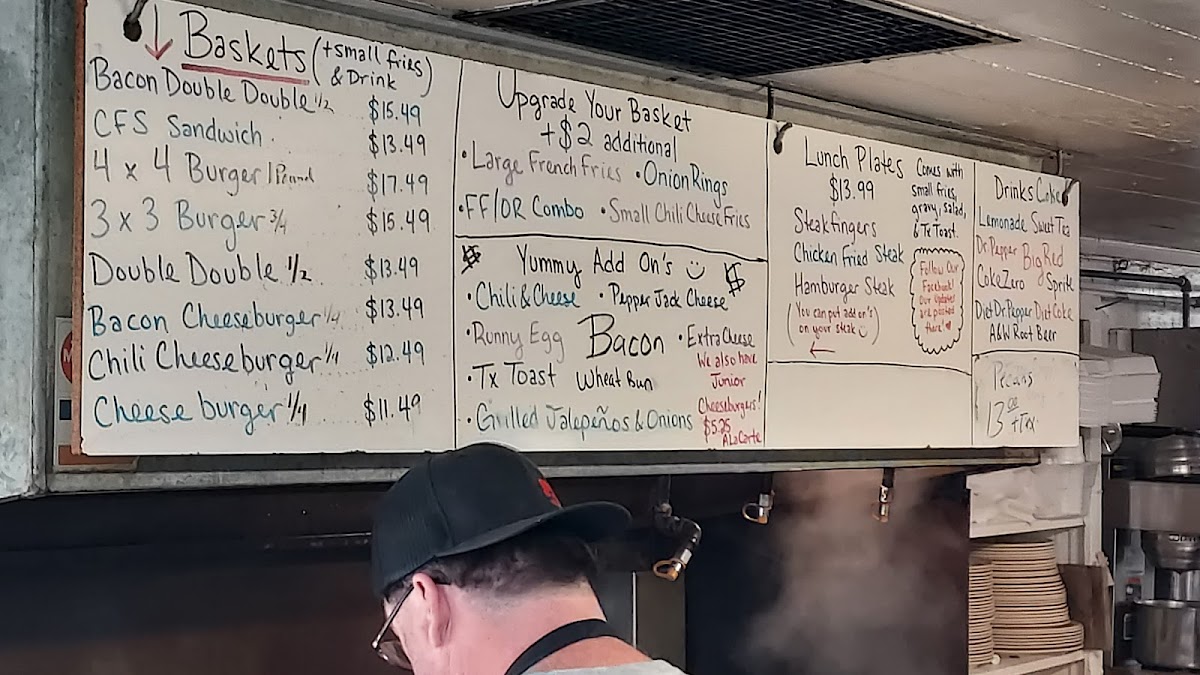 ↓ Baskets (+small fries
& Drink)
Bacon Double Double 1/2 $15.49
CFS Sandwich $13.49
4 x 4 Burger 1 Pound $17.49
3 x 3 Burger 3/4 $15.49
Double Double 1/2 $13.49
Bacon Cheeseburger 1/4 $13.49
Chili Cheeseburger 1/4 $12.49
Cheese burger 1/4 $11.49
Upgrade Your Basket
+$2 additional
•Large French Fries •Onion Rings
•FF/OR Combo •Small Chili Cheese Fries
$ Yummy Add On's $
•Chili & Cheese •Pepper Jack Cheese
•Runny Egg Bacon •Extra Cheese
•Tx Toast Wheat Bun
•Grilled Jalepeños & Onions
We also have
Junior
Cheeseburgers!
$5.25
A La Carte
Lunch Plates
$13.99
Comes with
small fries,
gravy, salad,
& Tx Toast
Steakfingers
Chicken Fried Steak
Hamburger Steak
(You can put add on's
on your steak)
←
Follow Our
Facebook!
Our updates
are posted
there!
Drinks Coke
Lemonade Sweet Tea
Dr. Pepper Big Red
Coke Zero Sprite
Diet Dr. Pepper Diet Coke
A&W Root Beer
Pecans
13.00
+Tax